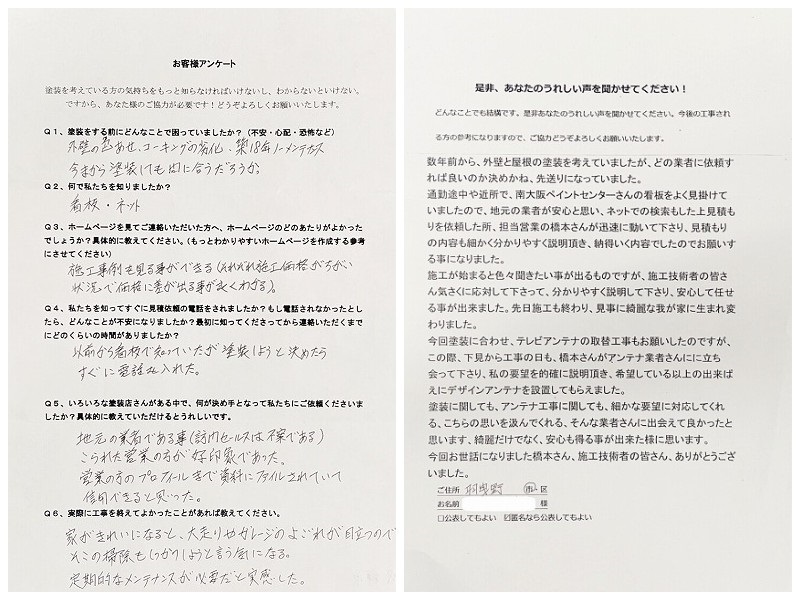 お客様アンケート
塗装を考えている方の気持ちをもっと知らなければいけないし、わからないといけない。
ですから、あなた様のご協力が必要です！どうぞよろしくお願いいたします。
Q１、塗装をする前にどんなことで困っていましたか？（不安・心配・恐怖など）
外壁の色あせ、コーキングの劣化、築18年ノーメンテナス
今まから塗装しても間に合うだろうか。
Q２、何で私たちを知りましたか？
看板・ネット
Q３、ホームページを見てご連絡いただいた方へ、ホームページのどのあたりがよかった
でしょうか？具体的に教えてください。（もっとわかりやすいホームページを作成する参考
にさせてください）
施工事例を見る事ができる（それぞれ施工価格がちがい
状況で価格に差が出る事が良くわかる）。
Q４、私たちを知ってすぐに見積依頼の電話をされましたか？もし電話されなかったとし
たら、どんなことが不安になりましたか？最初に知ってくださってから連絡いただくまで
にどのくらいの時間がありましたか？
以前から看板で知っていたが塗装しようと決めたら
すぐに電話を入れた。
Q５、いろいろな塗装店さんがある中で、何が決め手となって私たちにご依頼くださいま
したか？具体的に教えていただけるとうれしいです。
地元の業者である事（訪門セールスは不安である）
こられた営業の方が好印象であった。
営業の方のプロフィールまで資料にファイルされていて
信用できると思った。
Q６、実際に工事を終えてよかったことがあれば教えてください。
家がきれいになると、大走りやガレージのよごれが目立つので
そこの掃除もしっかりしようと言う気になる。
定期的なメンテナンスが必要だと実感した。
是非、あなたのうれしい声を聞かせてください！
どんなことでも結構です。是非あなたのうれしい声を聞かせてください。今後の工事され
る方の参考になりますので、ご協力どうぞよろしくお願いいたします。
数年前から、外壁と屋根の塗装を考えていましたが、どの業者に依頼す
れば良いのか決めかね、先送りになっていました。
通勤途中や近所で、南大阪ペイントセンターさんの看板をよく見掛けて
いましたので、地元の業者が安心と思い、ネットでの検索もした上見積も
りを依頼した所、担当営業の橋本さんが迅速に動いて下さり、見積もり
の内容も細かく分かりやすく説明頂き、納得いく内容でしたのでお願いす
る事になりました。
施工が始まると色々聞きたい事が出るものですが、施工技術者の皆さ
ん気さくに応対して下さって、分かりやすく説明して下さり、安心して任せ
る事が出来ました。先日施工も終わり、見事に綺麗な我が家に生まれ変
わりました。
今回塗装に合わせ、テレビアンテナの取替工事もお願いしたのですが、
この際、下見から工事の日も、橋本さんがアンテナ業者さんにに立ち
会って下さり、私の要望を的確に説明頂き、希望している以上の出来ば
えにデザインアンテナを設置してもらえました。
塗装に関しても、アンテナ工事に関しても、細かな要望に対応してくれ
る、こちらの思いを汲んでくれる、そんな業者さんに出会えて良かったと
思います、綺麗だけでなく、安心も得る事が出来た様に思います。
今回お世話になりました橋本さん、施工技術者の皆さん、ありがとうござ
いました。
ご住所 羽曳野 市・区
お名前 様
□公表してもよい ☑匿名なら公表してもよい